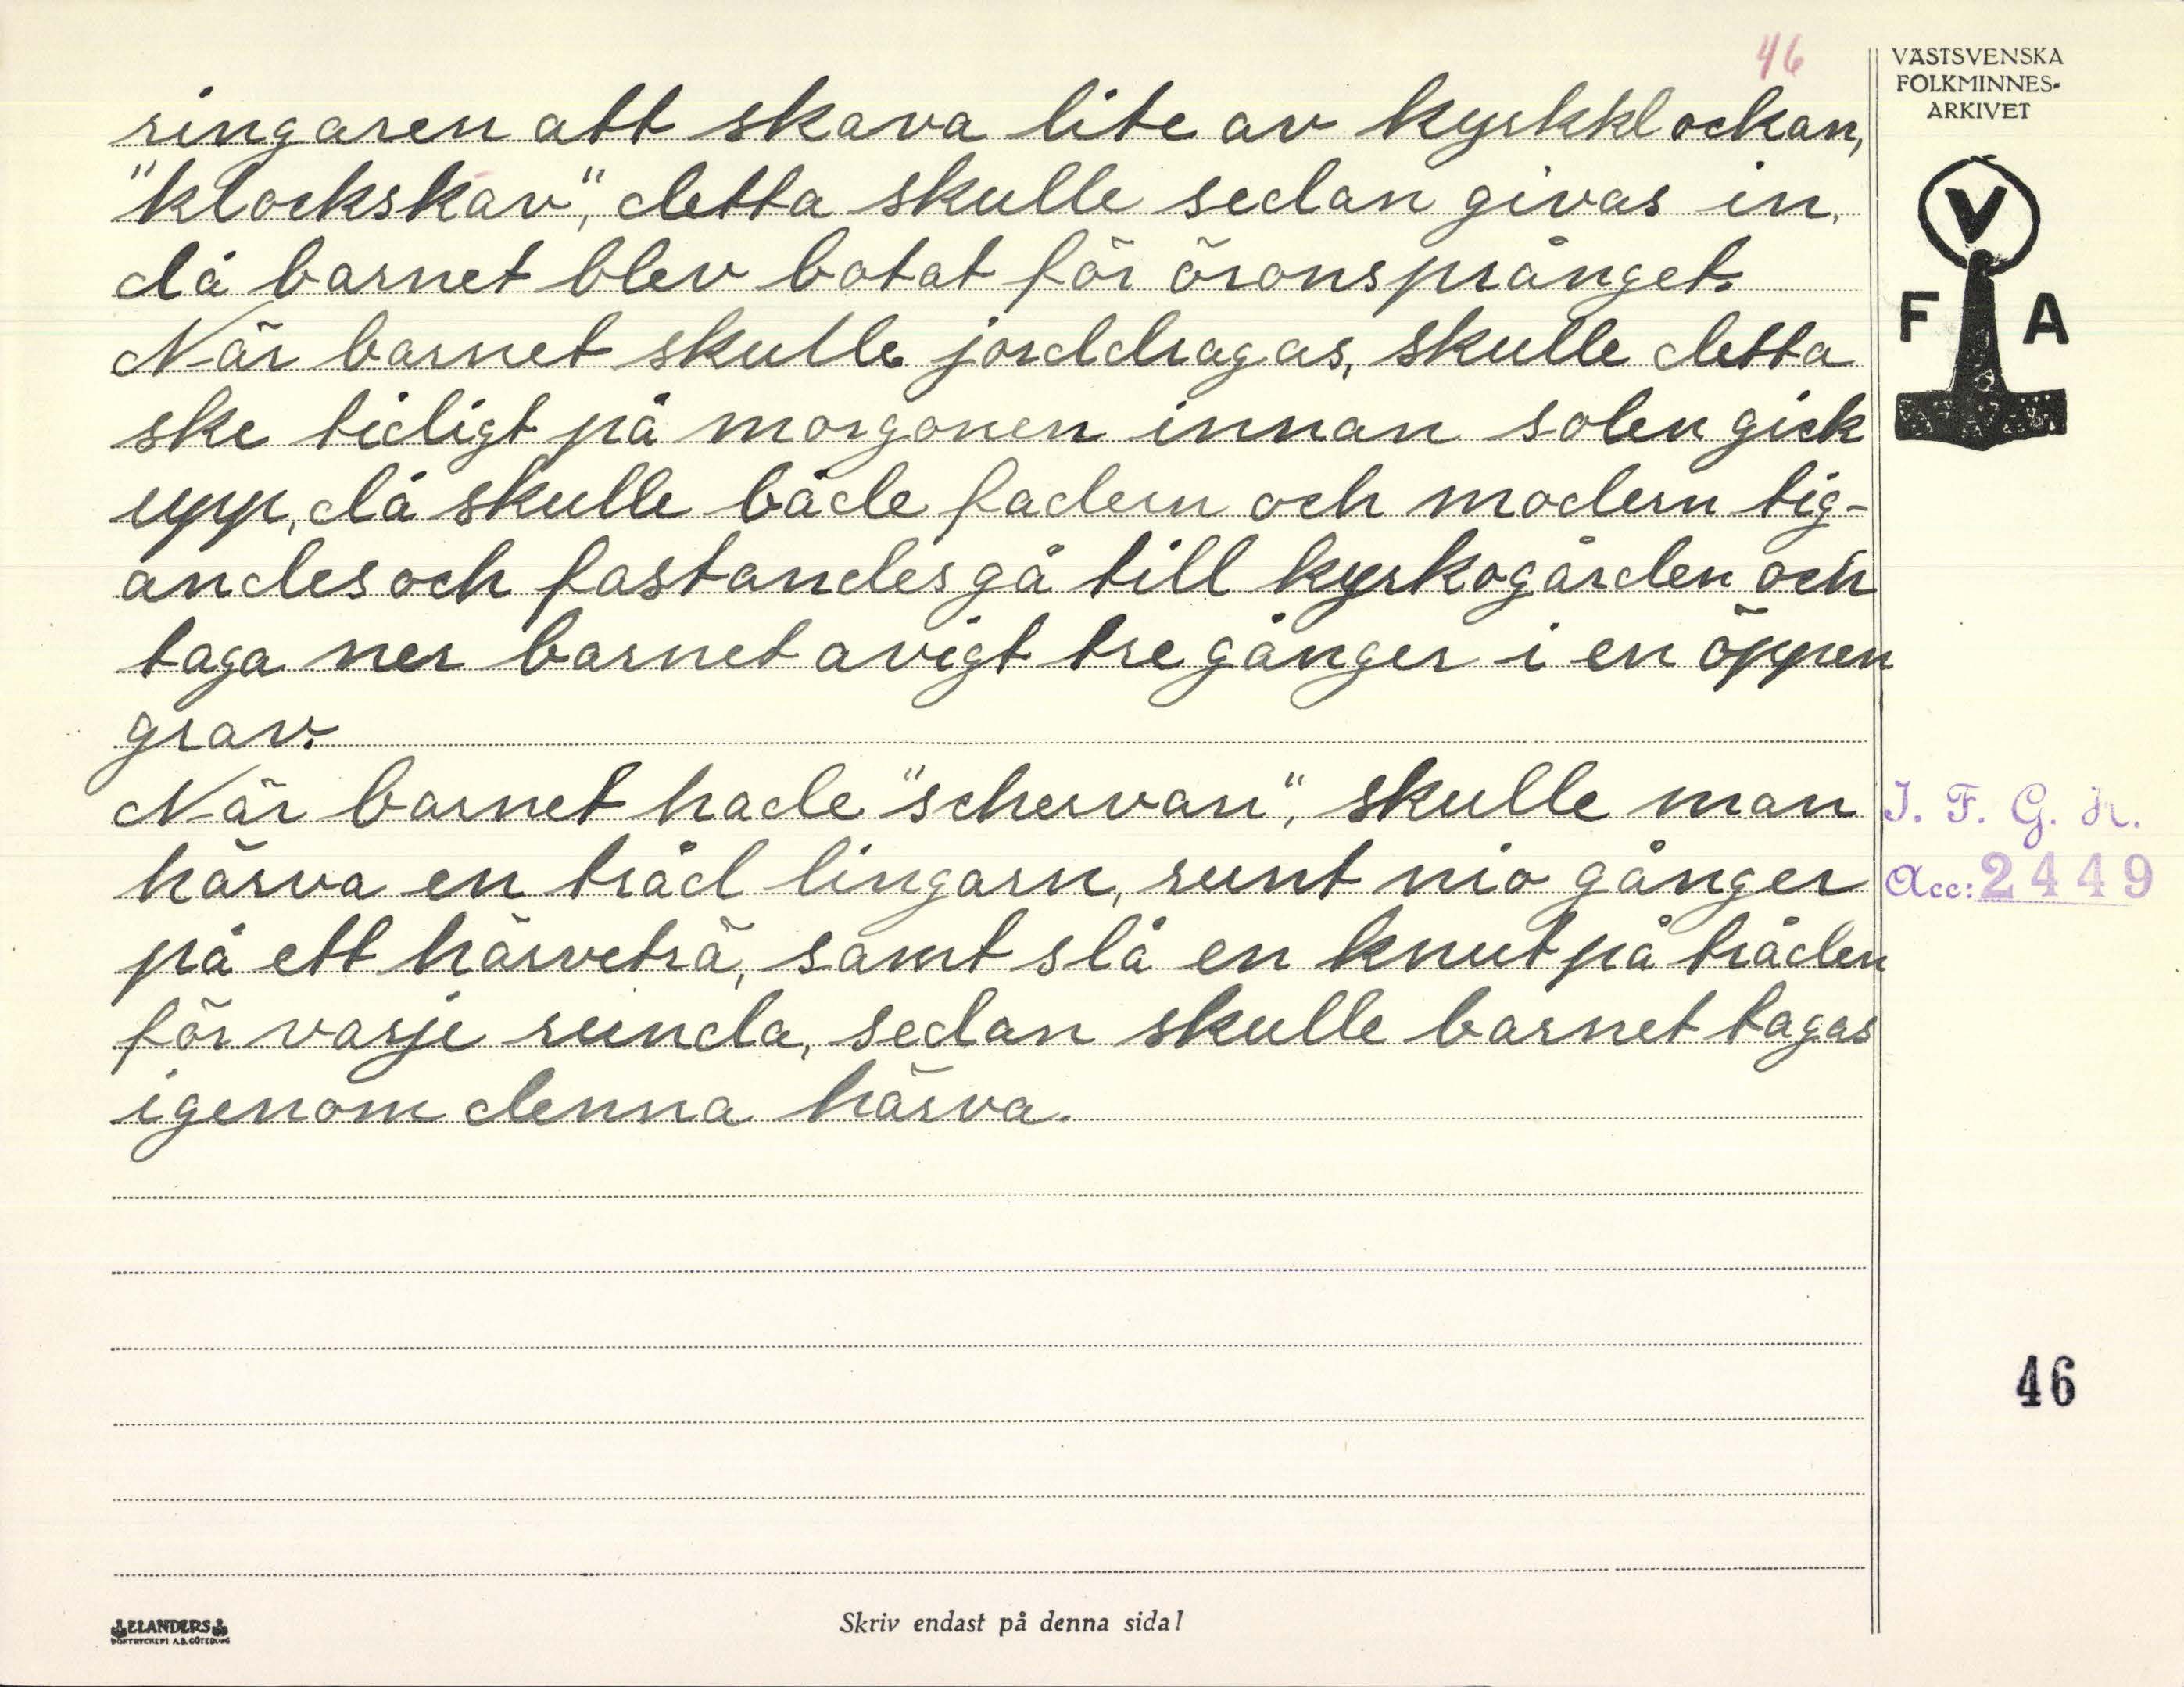 46
VÄSTSVENSKA
FOLKMINNES-
ARKIVET
V
F A
ringaren att skava lite av kyrkklockan,
"klockskav", detta skulle sedan givas in,
då barnet blev botat för öronsprånget.
När barnet skulle jorddragas, skulle detta
ske tidigt på morgonen innan solen gick
upp, då skulle både fadern och modern tig-
andes och fastandes gå till kyrkogården och
taga ner barnet avigt tre gånger i en öppen
grav.
När barnet hade "schervan", skulle man
härva en tråd lingarn, runt nio gånger
på ett härveträ, samt slå en knut på tråden
för varje runda, sedan skulle barnet tagas
igenom denna härva.
I. F. G. H.
Acc: 2449
46
ELANDERS
BOKTRYCKERI A.B. GÖTEBORG
Skriv endast på denna sida!